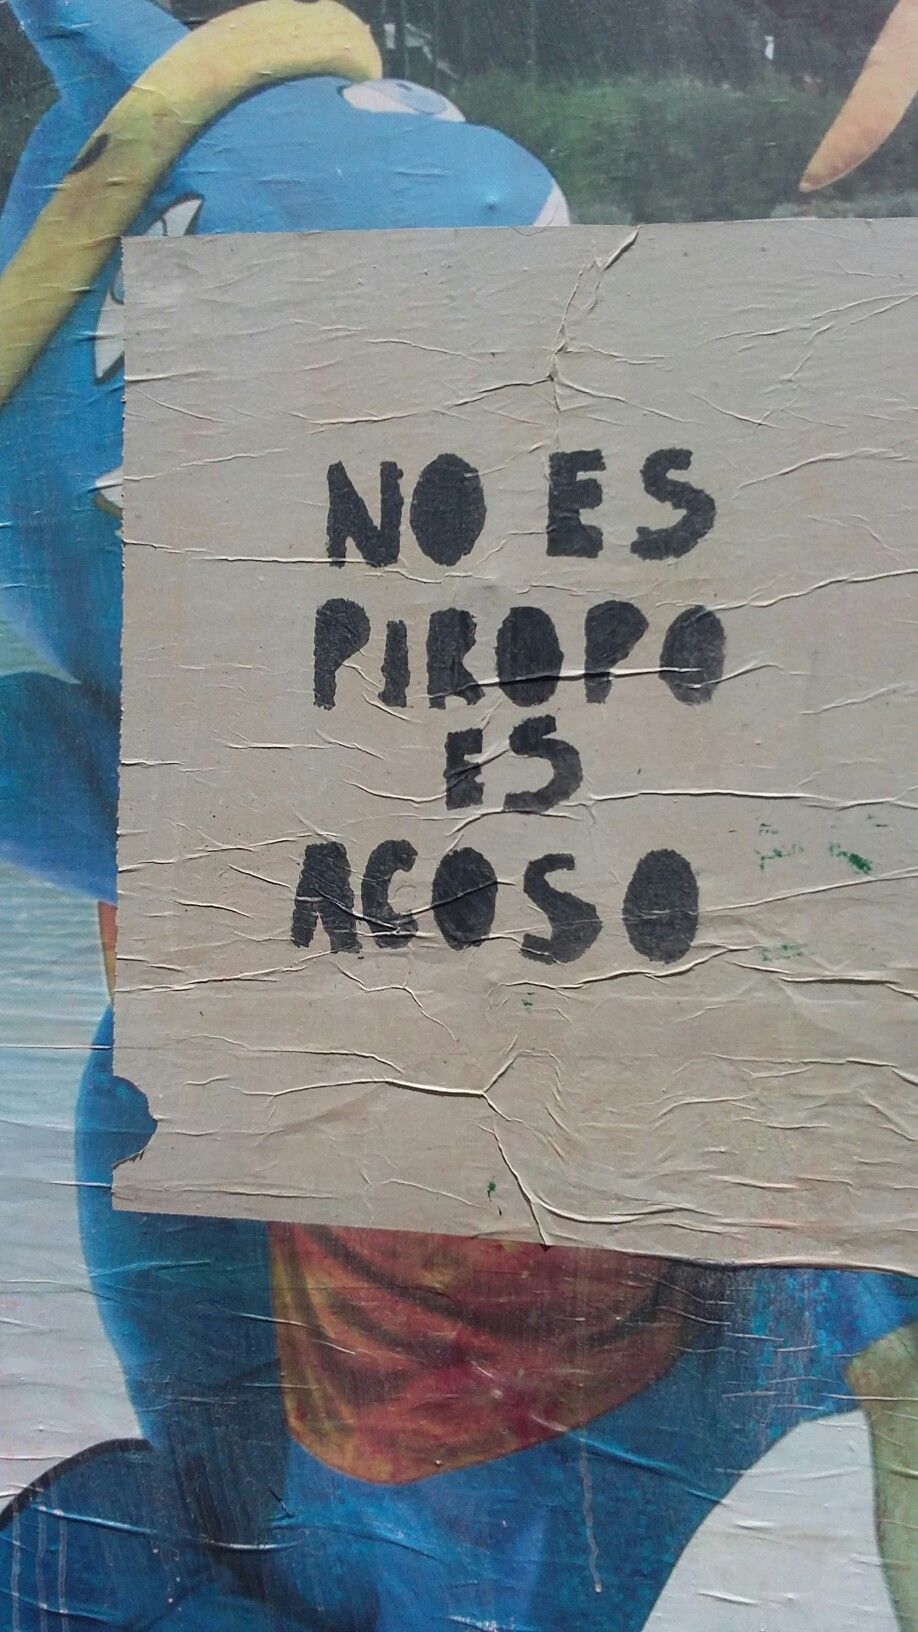 NO ES
PIROPO
ES
ACOSO